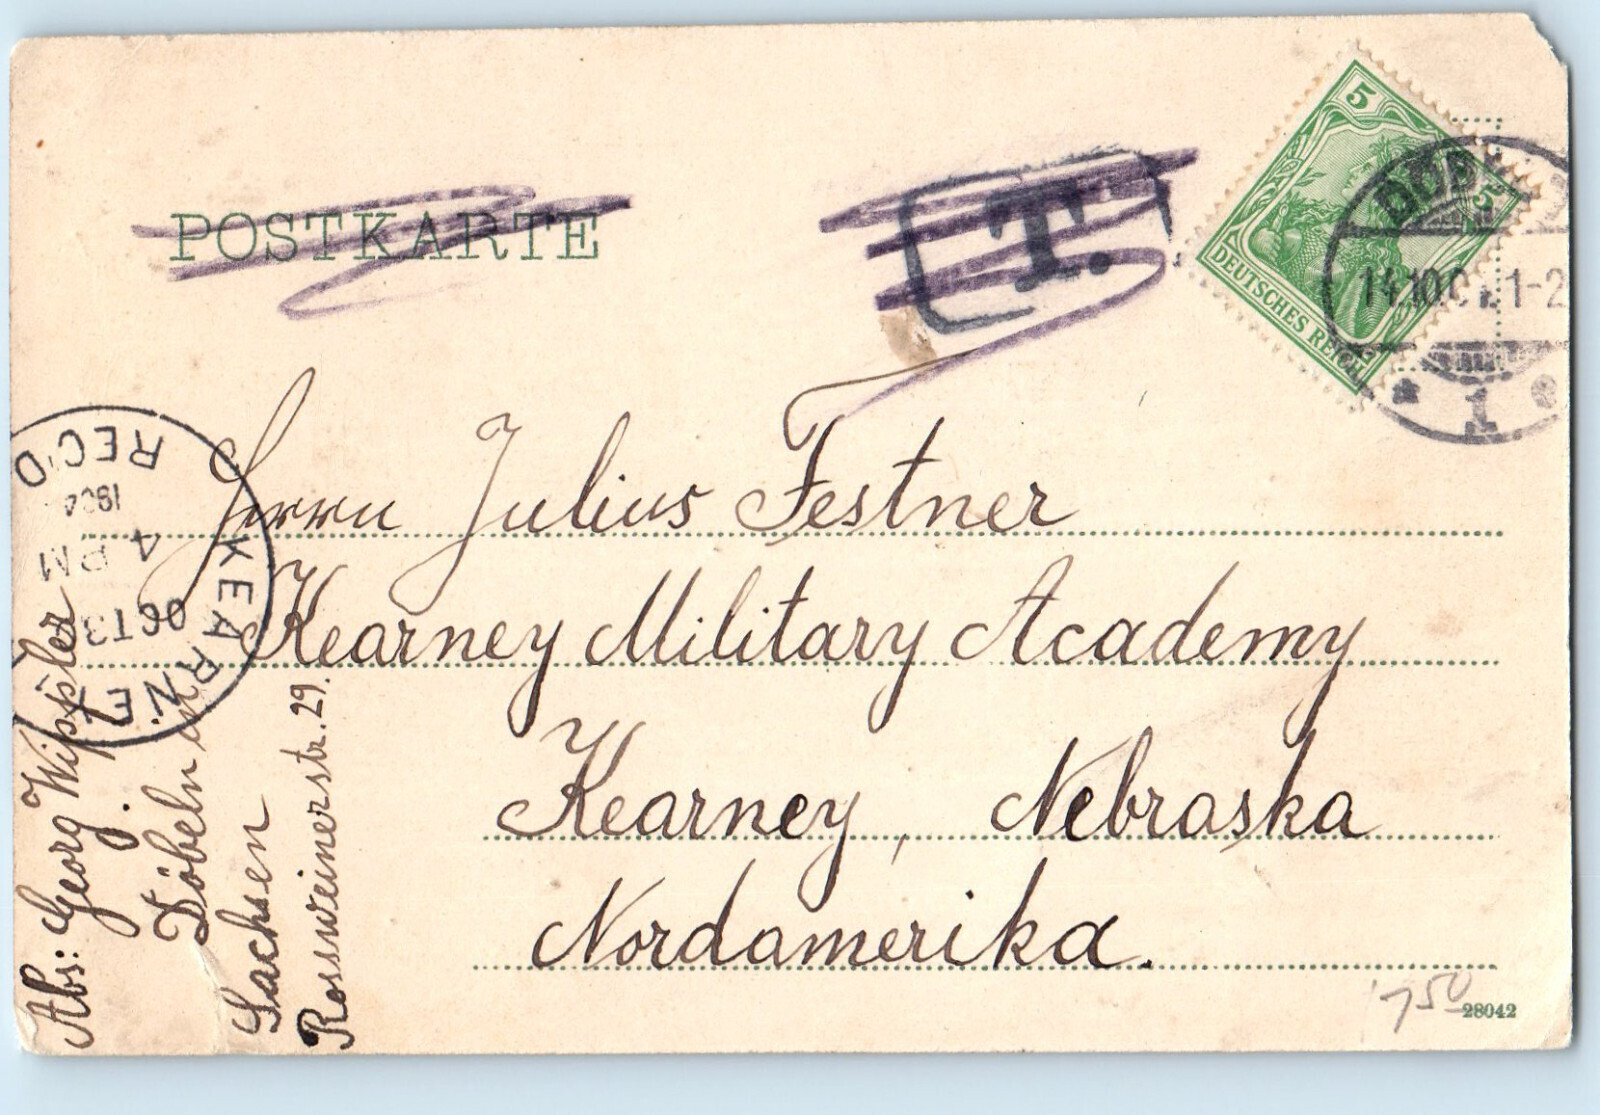 POSTKARTE
T.
5
5
DEUTSCHES REICH
14.10.0 1-2
1
REC'D
1904
4 PM
OCT 3
KEARNEY
Herrn Julius Festner
Kearney Military Academy
Kearney, Nebraska
Nordamerika.
Abs: Georg Wippler
Döbeln in
Sachsen
Rossweinerstr. 29.
750
28042